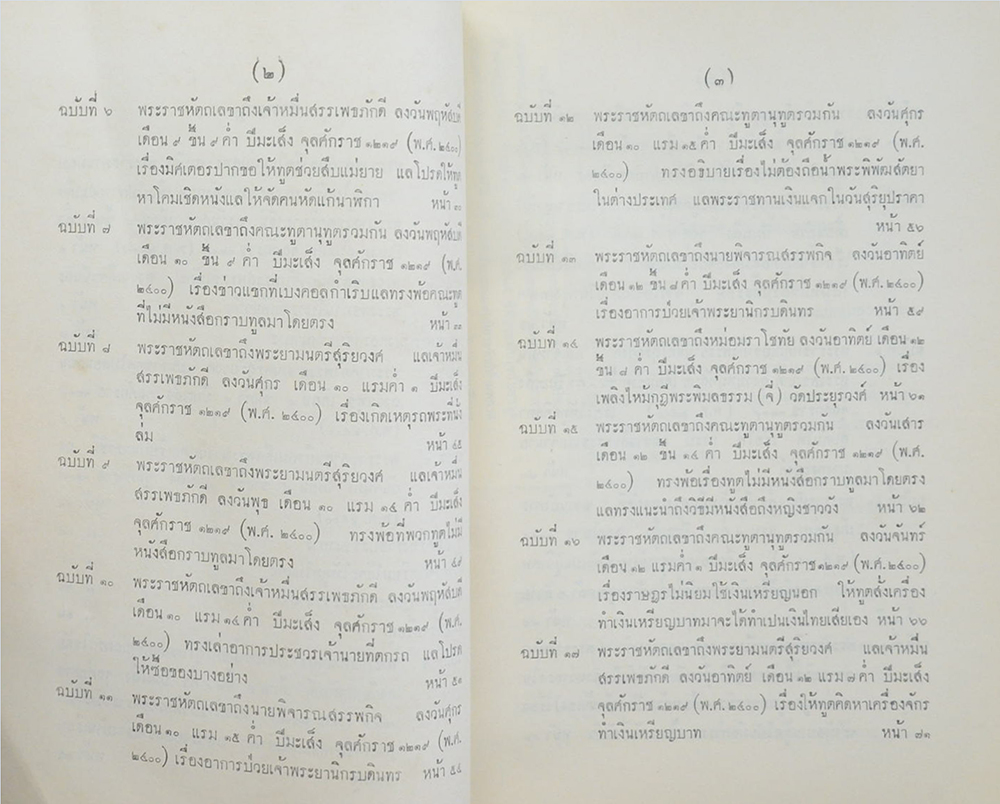 (๒)
ฉบับที่ ๖ พระราชหัตถเลขาถึงเจ้าหมื่นสรรเพชภักดี ลงวันพฤหัสบดี
เดือน ๙ ขึ้น ๙ ค่ำ ปีมะเส็ง จุลศักราช ๑๒๑๙ (พ.ศ. ๒๔๐๐)
เรื่องมิศเตอรปากขอให้ทูตช่วยสืบแม่ยาย แลโปรดให้ทูต
หาโคมเชิดหนังแลให้จัดคนหัดแก้นาฬิกา หน้า
ฉบับที่ ๗ พระราชหัตถเลขาถึงคณะทูตานุทูตรวมกัน ลงวันพฤหัสบดี
เดือน ๑๐ ขึ้น ๙ ค่ำ ปีมะเส็ง จุลศักราช ๑๒๑๙ (พ.ศ.
๒๔๐๐) เรื่องข่าวแขกที่เบงคอลกำเริบแลทรงพ้อคณะทูต
ที่ไม่มีหนังสือกราบทูลมาโดยตรง หน้า
ฉบับที่ ๘ พระราชหัตถเลขาถึงพระยามนตรีสุริยวงศ์ แลเจ้าหมื่น
สรรเพชภักดี ลงวันศุกร เดือน ๑๐ แรมค่ำ ๑ ปีมะเส็ง
จุลศักราช ๑๒๑๙ (พ.ศ. ๒๔๐๐) เรื่องเกิดเหตุรถพระที่นั่ง
ล่ม หน้า ๔๕
ฉบับที่ ๙ พระราชหัตถเลขาถึงพระยามนตรีสุริยวงศ์ แลเจ้าหมื่น
สรรเพชภักดี ลงวันพุธ เดือน ๑๐ แรม ๑๔ ค่ำ ปีมะเส็ง
จุลศักราช ๑๒๑๙ (พ.ศ. ๒๔๐๐) ทรงพ้อที่พวกทูตไม่มี
หนังสือกราบทูลมาโดยตรง หน้า ๔๙
ฉบับที่ ๑๐ พระราชหัตถเลขาถึงเจ้าหมื่นสรรเพชภักดี ลงวันพฤหัสบดี
เดือน ๑๐ แรม ๑๔ ค่ำ ปีมะเส็ง จุลศักราช ๑๒๑๙ (พ.ศ.
๒๔๐๐) ทรงเล่าอาการประชวรเจ้านายที่ตกรถ แลโปรด
ให้ซื้อของบางอย่าง หน้า ๕๑
ฉบับที่ ๑๑ พระราชหัตถเลขาถึงนายพิจารณสรรพกิจ ลงวันศุกร
เดือน ๑๐ แรม ๑๕ ค่ำ ปีมะเส็ง จุลศักราช ๑๒๑๙ (พ.ศ.
๒๔๐๐) เรื่องอาการป่วยเจ้าพระยานิกรบดินทร หน้า ๕๔
(๓)
ฉบับที่ ๑๒ พระราชหัตถเลขาถึงคณะทูตานุทูตรวมกัน ลงวันศุกร
เดือน ๑๐ แรม ๑๕ ค่ำ ปีมะเส็ง จุลศักราช ๑๒๑๙ (พ.ศ.
๒๔๐๐) ทรงอธิบายเรื่องไม่ต้องถือน้ำพระพิพัฒสัตยา
ในต่างประเทศ แลพระราชทานเงินแจกในวันสุริยุปราคา
หน้า ๕๖
ฉบับที่ ๑๓ พระราชหัตถเลขาถึงนายพิจารณสรรพกิจ ลงวันอาทิตย์
เดือน ๑๒ ขึ้น ๘ ค่ำ ปีมะเส็ง จุลศักราช ๑๒๑๙ (พ.ศ. ๒๔๐๐)
เรื่องอาการป่วยเจ้าพระยานิกรบดินทร หน้า ๕๙
ฉบับที่ ๑๔ พระราชหัตถเลขาถึงหม่อมราโชทัย ลงวันอาทิตย์ เดือน ๑๒
ขึ้น ๘ ค่ำ ปีมะเส็ง จุลศักราช ๑๒๑๙ (พ.ศ. ๒๔๐๐) เรื่อง
เพลิงไหม้กุฎีพระพิมลธรรม (จี่) วัดประยุรวงศ์ หน้า ๖๑
ฉบับที่ ๑๕ พระราชหัตถเลขาถึงคณะทูตานุทูตรวมกัน ลงวันเสาร
เดือน ๑๒ ขึ้น ๑๔ ค่ำ ปีมะเส็ง จุลศักราช ๑๒๑๙ (พ.ศ.
๒๔๐๐) ทรงพ้อเรื่องทูตไม่มีหนังสือกราบทูลมาโดยตรง
แลทรงแนะนำถึงวิธีมีหนังสือถึงหญิงชาววัง หน้า ๖๒
ฉบับที่ ๑๖ พระราชหัตถเลขาถึงคณะทูตานุทูตรวมกัน ลงวันจันทร์
เดือน ๑๒ แรมค่ำ ๑ ปีมะเส็ง จุลศักราช ๑๒๑๙ (พ.ศ. ๒๔๐๐)
เรื่องราษฎรไม่นิยมใช้เงินเหรียญนอก ให้ทูตสั่งเครื่อง
ทำเงินเหรียญบาทมาจะได้ทำเปนเงินไทยเสียเอง หน้า ๖๖
ฉบับที่ ๑๗ พระราชหัตถเลขาถึงพระยามนตรีสุริยวงศ์ แลเจ้าหมื่น
สรรเพชภักดี ลงวันอาทิตย์ เดือน ๑๒ แรม ๗ ค่ำ ปีมะเส็ง
จุลศักราช ๑๒๑๙ (พ.ศ. ๒๔๐๐) เรื่องให้ทูตคิดหาเครื่องจักร
ทำเงินเหรียญบาท หน้า ๗๑